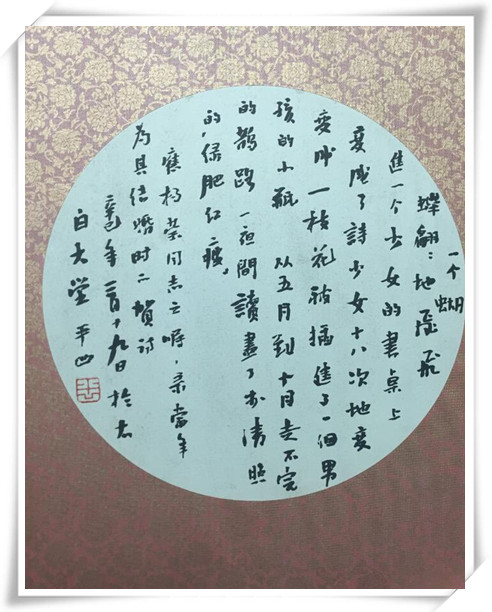 一个蝴
蝶翩:地飛飛
進一个少女的書桌上
變成了詩少女十八次地变
变成一枝花被插進了一個男
孩的小瓶 从五月到十月走不完
的鹊路一夜間讀盡了李清照
的,绿肥红瘦,
應杨莹同志之嘱,录當年
為其结婚时二賀詩
辛巳年二月十九日於太
白大堂 平凹